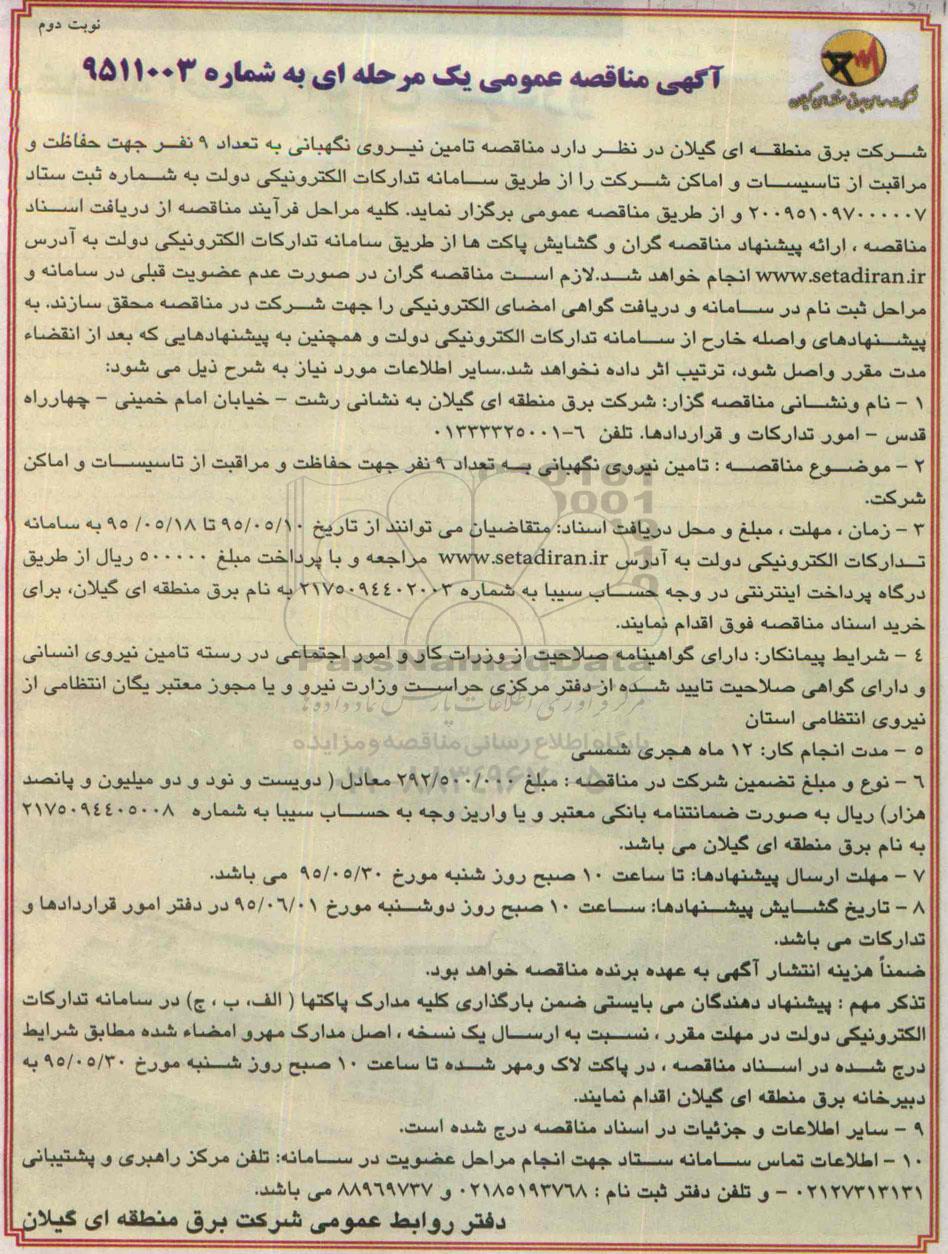 نوبت دوم
آگهی مناقصه عمومی یک مرحله ای به شماره ۹۵۱۱۰۰۳
شرکت سهامی برق منطقه‌ای گیلان
شرکت برق منطقه ای گیلان در نظر دارد مناقصه تامین نیروی نگهبانی به تعداد ۹ نفر جهت حفاظت و
مراقبت از تاسیسات و اماکن شرکت را از طریق سامانه تدارکات الکترونیکی دولت به شماره ثبت ستاد
۲۰۰۹۵۱۰۹۷۰۰۰۰۰۷ و از طریق مناقصه عمومی برگزار نماید. کلیه مراحل فرآیند مناقصه از دریافت اسناد
مناقصه ، ارائه پیشنهاد مناقصه گران و گشایش پاکت ها از طریق سامانه تدارکات الکترونیکی دولت به آدرس
www.setadiran.ir انجام خواهد شد.لازم است مناقصه گران در صورت عدم عضویت قبلی در سامانه و
مراحل ثبت نام در سامانه و دریافت گواهی امضای الکترونیکی را جهت شرکت در مناقصه محقق سازند. به
پیشنهادهای واصله خارج از سامانه تدارکات الکترونیکی دولت و همچنین به پیشنهادهایی که بعد از انقضاء
مدت مقرر واصل شود، ترتیب اثر داده نخواهد شد.سایر اطلاعات مورد نیاز به شرح ذیل می شود:
۱ - نام ونشانی مناقصه گزار: شرکت برق منطقه ای گیلان به نشانی رشت - خیابان امام خمینی - چهارراه
قدس - امور تدارکات و قراردادها. تلفن ۶-۰۱۳۳۳۳۲۵۰۰۱
۲ - موضوع مناقصه : تامین نیروی نگهبانی به تعداد ۹ نفر جهت حفاظت و مراقبت از تاسیسات و اماکن
شرکت.
۳ - زمان ، مهلت ، مبلغ و محل دریافت اسناد: متقاضیان می توانند از تاریخ ۹۵/۰۵/۱۰ تا ۹۵/۰۵/۱۸ به سامانه
تدارکات الکترونیکی دولت به آدرس www.setadiran.ir مراجعه و با پرداخت مبلغ ۵۰۰۰۰۰ ریال از طریق
درگاه پرداخت اینترنتی در وجه حساب سیبا به شماره ۲۱۷۵۰۹۴۴۰۲۰۰۳ به نام برق منطقه ای گیلان، برای
خرید اسناد مناقصه فوق اقدام نمایند.
۴ - شرایط پیمانکار: دارای گواهینامه صلاحیت از وزرات کار و امور اجتماعی در رسته تامین نیروی انسانی
و دارای گواهی صلاحیت تایید شده از دفتر مرکزی حراست وزارت نیرو و یا مجوز معتبر یگان انتظامی از
نیروی انتظامی استان
۵ - مدت انجام کار: ۱۲ ماه هجری شمسی
۶ - نوع و مبلغ تضمین شرکت در مناقصه : مبلغ ۲۹۲/۵۰۰/۰۰۰ معادل ( دویست و نود و دو میلیون و پانصد
هزار) ریال به صورت ضمانتنامه بانکی معتبر و یا واریز وجه به حساب سیبا به شماره ۲۱۷۵۰۹۴۴۰۵۰۰۸
به نام برق منطقه ای گیلان می باشد.
۷ - مهلت ارسال پیشنهادها: تا ساعت ۱۰ صبح روز شنبه مورخ ۹۵/۰۵/۳۰ می باشد.
۸ - تاریخ گشایش پیشنهادها: ساعت ۱۰ صبح روز دوشنبه مورخ ۹۵/۰۶/۰۱ در دفتر امور قراردادها و
تدارکات می باشد.
ضمناً هزینه انتشار آگهی به عهده برنده مناقصه خواهد بود.
تذکر مهم : پیشنهاد دهندگان می بایستی ضمن بارگذاری کلیه مدارک پاکتها ( الف، ب ، ج) در سامانه تدارکات
الکترونیکی دولت در مهلت مقرر ، نسبت به ارسال یک نسخه ، اصل مدارک مهرو امضاء شده مطابق شرایط
درج شده در اسناد مناقصه ، در پاکت لاک ومهر شده تا ساعت ۱۰ صبح روز شنبه مورخ ۹۵/۰۵/۳۰ به
دبیرخانه برق منطقه ای گیلان اقدام نمایند.
۹ - سایر اطلاعات و جزئیات در اسناد مناقصه درج شده است.
۱۰ - اطلاعات تماس سامانه ستاد جهت انجام مراحل عضویت در سامانه: تلفن مرکز راهبری و پشتیبانی
۰۲۱۲۷۳۱۳۱۳۱ - و تلفن دفتر ثبت نام : ۰۲۱۸۵۱۹۳۷۶۸ و ۸۸۹۶۹۷۳۷ می باشد.
دفتر روابط عمومی شرکت برق منطقه ای گیلان
ParsNamadData
مرکز فرآوری اطلاعات پارس نماد داده ها
پایگاه اطلاع رسانی مناقصه و مزایده